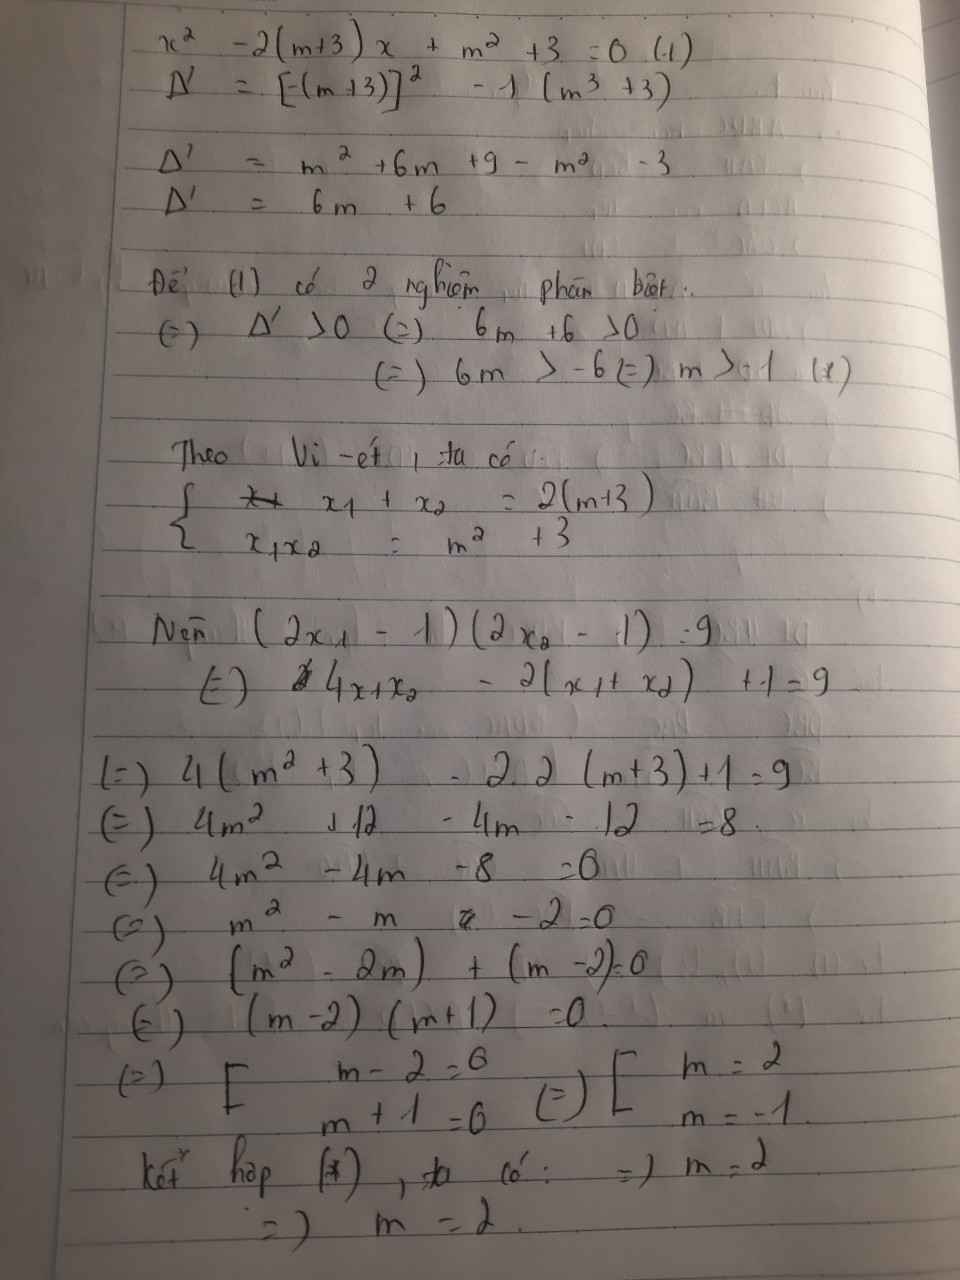 x² - 2(m+3)x + m² + 3 = 0 (1)
Δ' = [-(m+3)]² - 1 (m³ + 3)
Δ' = m² + 6m + 9 - m² - 3
Δ' = 6m + 6
Để (1) có 2 nghiệm phân biệt:
(=) Δ' > 0 (=) 6m + 6 > 0
(=) 6m > -6 (=) m > -1 (*)
Theo Vi-ét, ta có:
{ x₁ + x₂ = 2(m+3)
x₁x₂ = m² + 3
Nên (2x₁ - 1)(2x₂ - 1) = 9
(=) 4x₁x₂ - 2(x₁ + x₂) + 1 = 9
(=) 4(m² + 3) - 2.2(m+3) + 1 = 9
(=) 4m² + 12 - 4m - 12 = 8
(=) 4m² - 4m - 8 = 0
(=) m² - m - 2 = 0
(=) (m² - 2m) + (m - 2) = 0
(=) (m - 2)(m + 1) = 0
(=) [ m - 2 = 0 (=) [ m = 2
m + 1 = 0 m = -1
Kết hợp (*), ta có: =) m = 2
=) m = 2.